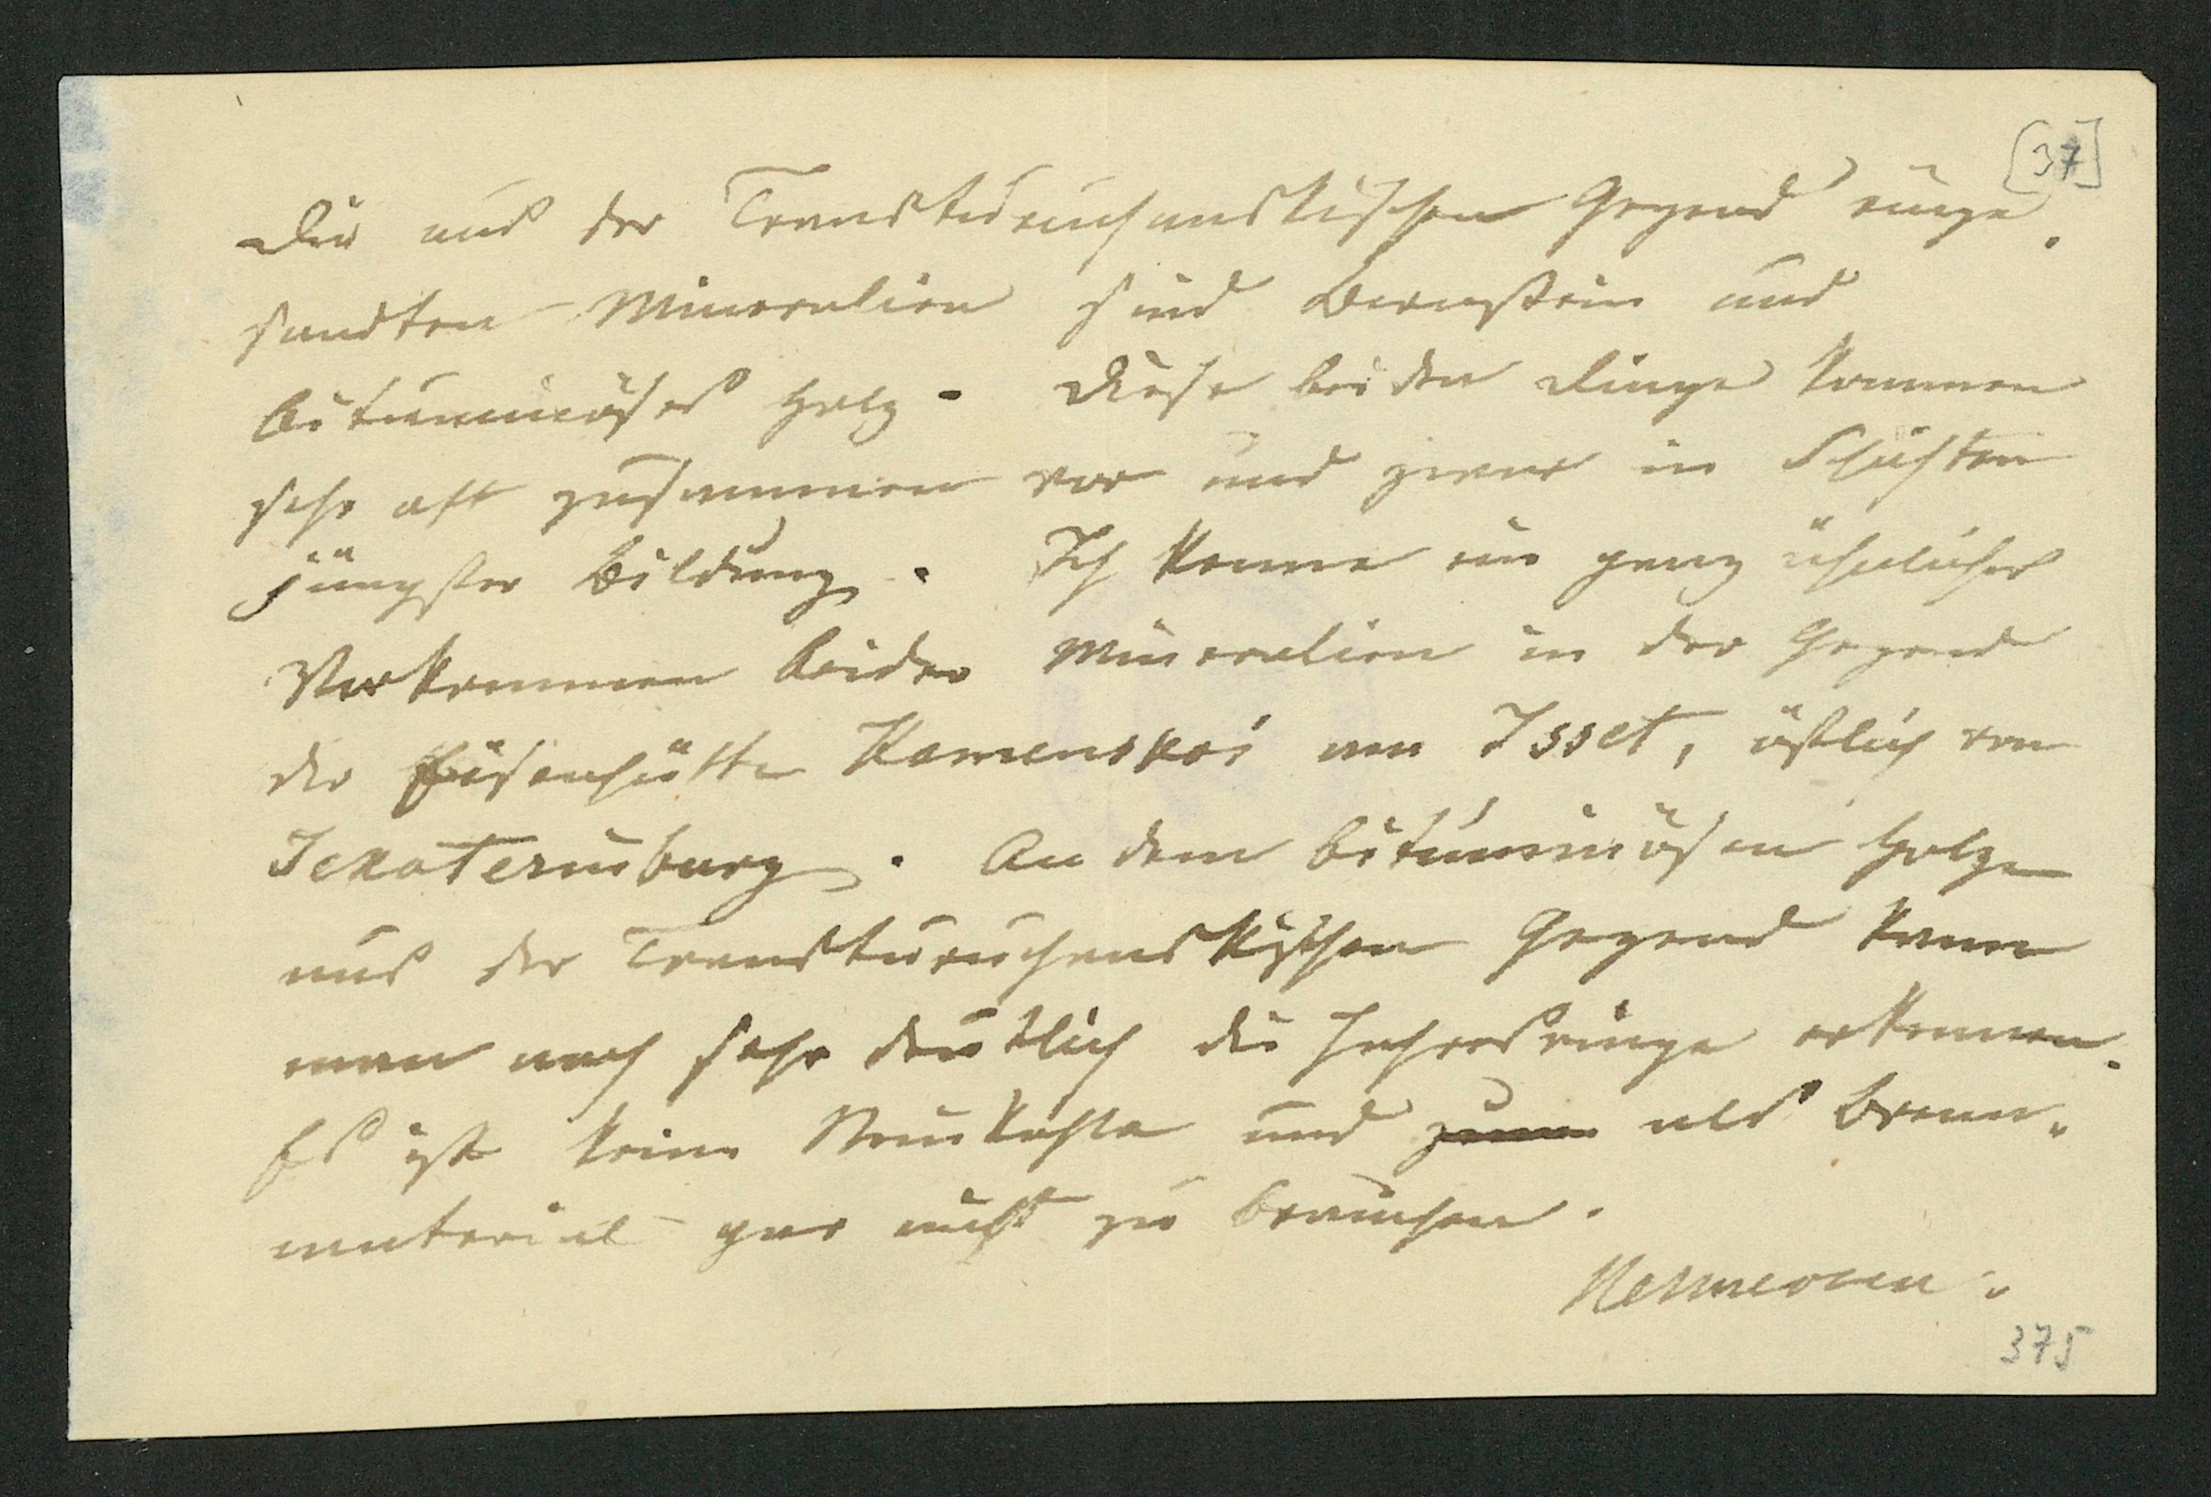 [37]
Die aus der Transturuchanskischen Gegend einge-
sandten Mineralien sind Bernstein und
bituminöses Holz. Diese beiden Dinge kommen
sehr oft zusammen vor und zwar in Schichten
jüngster Bildung. Ich kenne ein ganz ähnliches
Vorkommen beider Mineralien in der Gegend
der Eisenhütte Kamenskoi am Isset, östlich von
Jekaterinburg. An dem bituminösen Holze
aus der Transturuchanskischen Gegend kann
man noch sehr deutlich die Jahresringe erkennen.
Es ist keine Steinkohle und zum als Brenn-
material gar nicht zu brauchen.
Hermann.
375